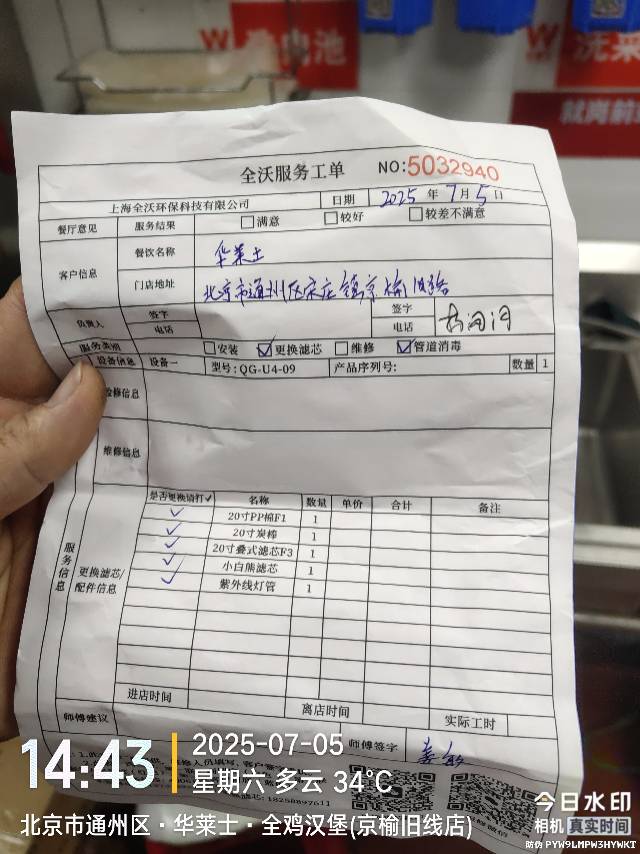 全沃服务工单 NO:5032940
上海全沃环保科技有限公司 日期 2025 年 7 月 5 日
餐厅意见 服务结果 满意 较好 较差不满意
客户信息 餐饮名称 华莱士
门店地址 北京市通州区宋庄镇京榆旧路
负责人 签字 签字
电话 电话
服务类别 安装 更换滤芯 维修 管道消毒
设备信息 设备一 型号:QG-U4-09 产品序列号: 数量 1
检修信息
维修信息
服务信息 更换滤芯/配件信息
是否更换请打✓ 名称 数量 单价 合计 备注
✓ 20寸PP棉F1 1
✓ 20寸炭棒 1
✓ 20寸叠式滤芯F3 1
✓ 小白熊滤芯 1
✓ 紫外线灯管 1
进店时间 离店时间 实际工时
师傅建议
师傅签字
14:43
2025-07-05
星期六 多云 34°C
北京市通州区·华莱士·全鸡汉堡(京榆旧线店)
今日水印
相机 真实时间
防伪 PYW9LMPW3HYWKI